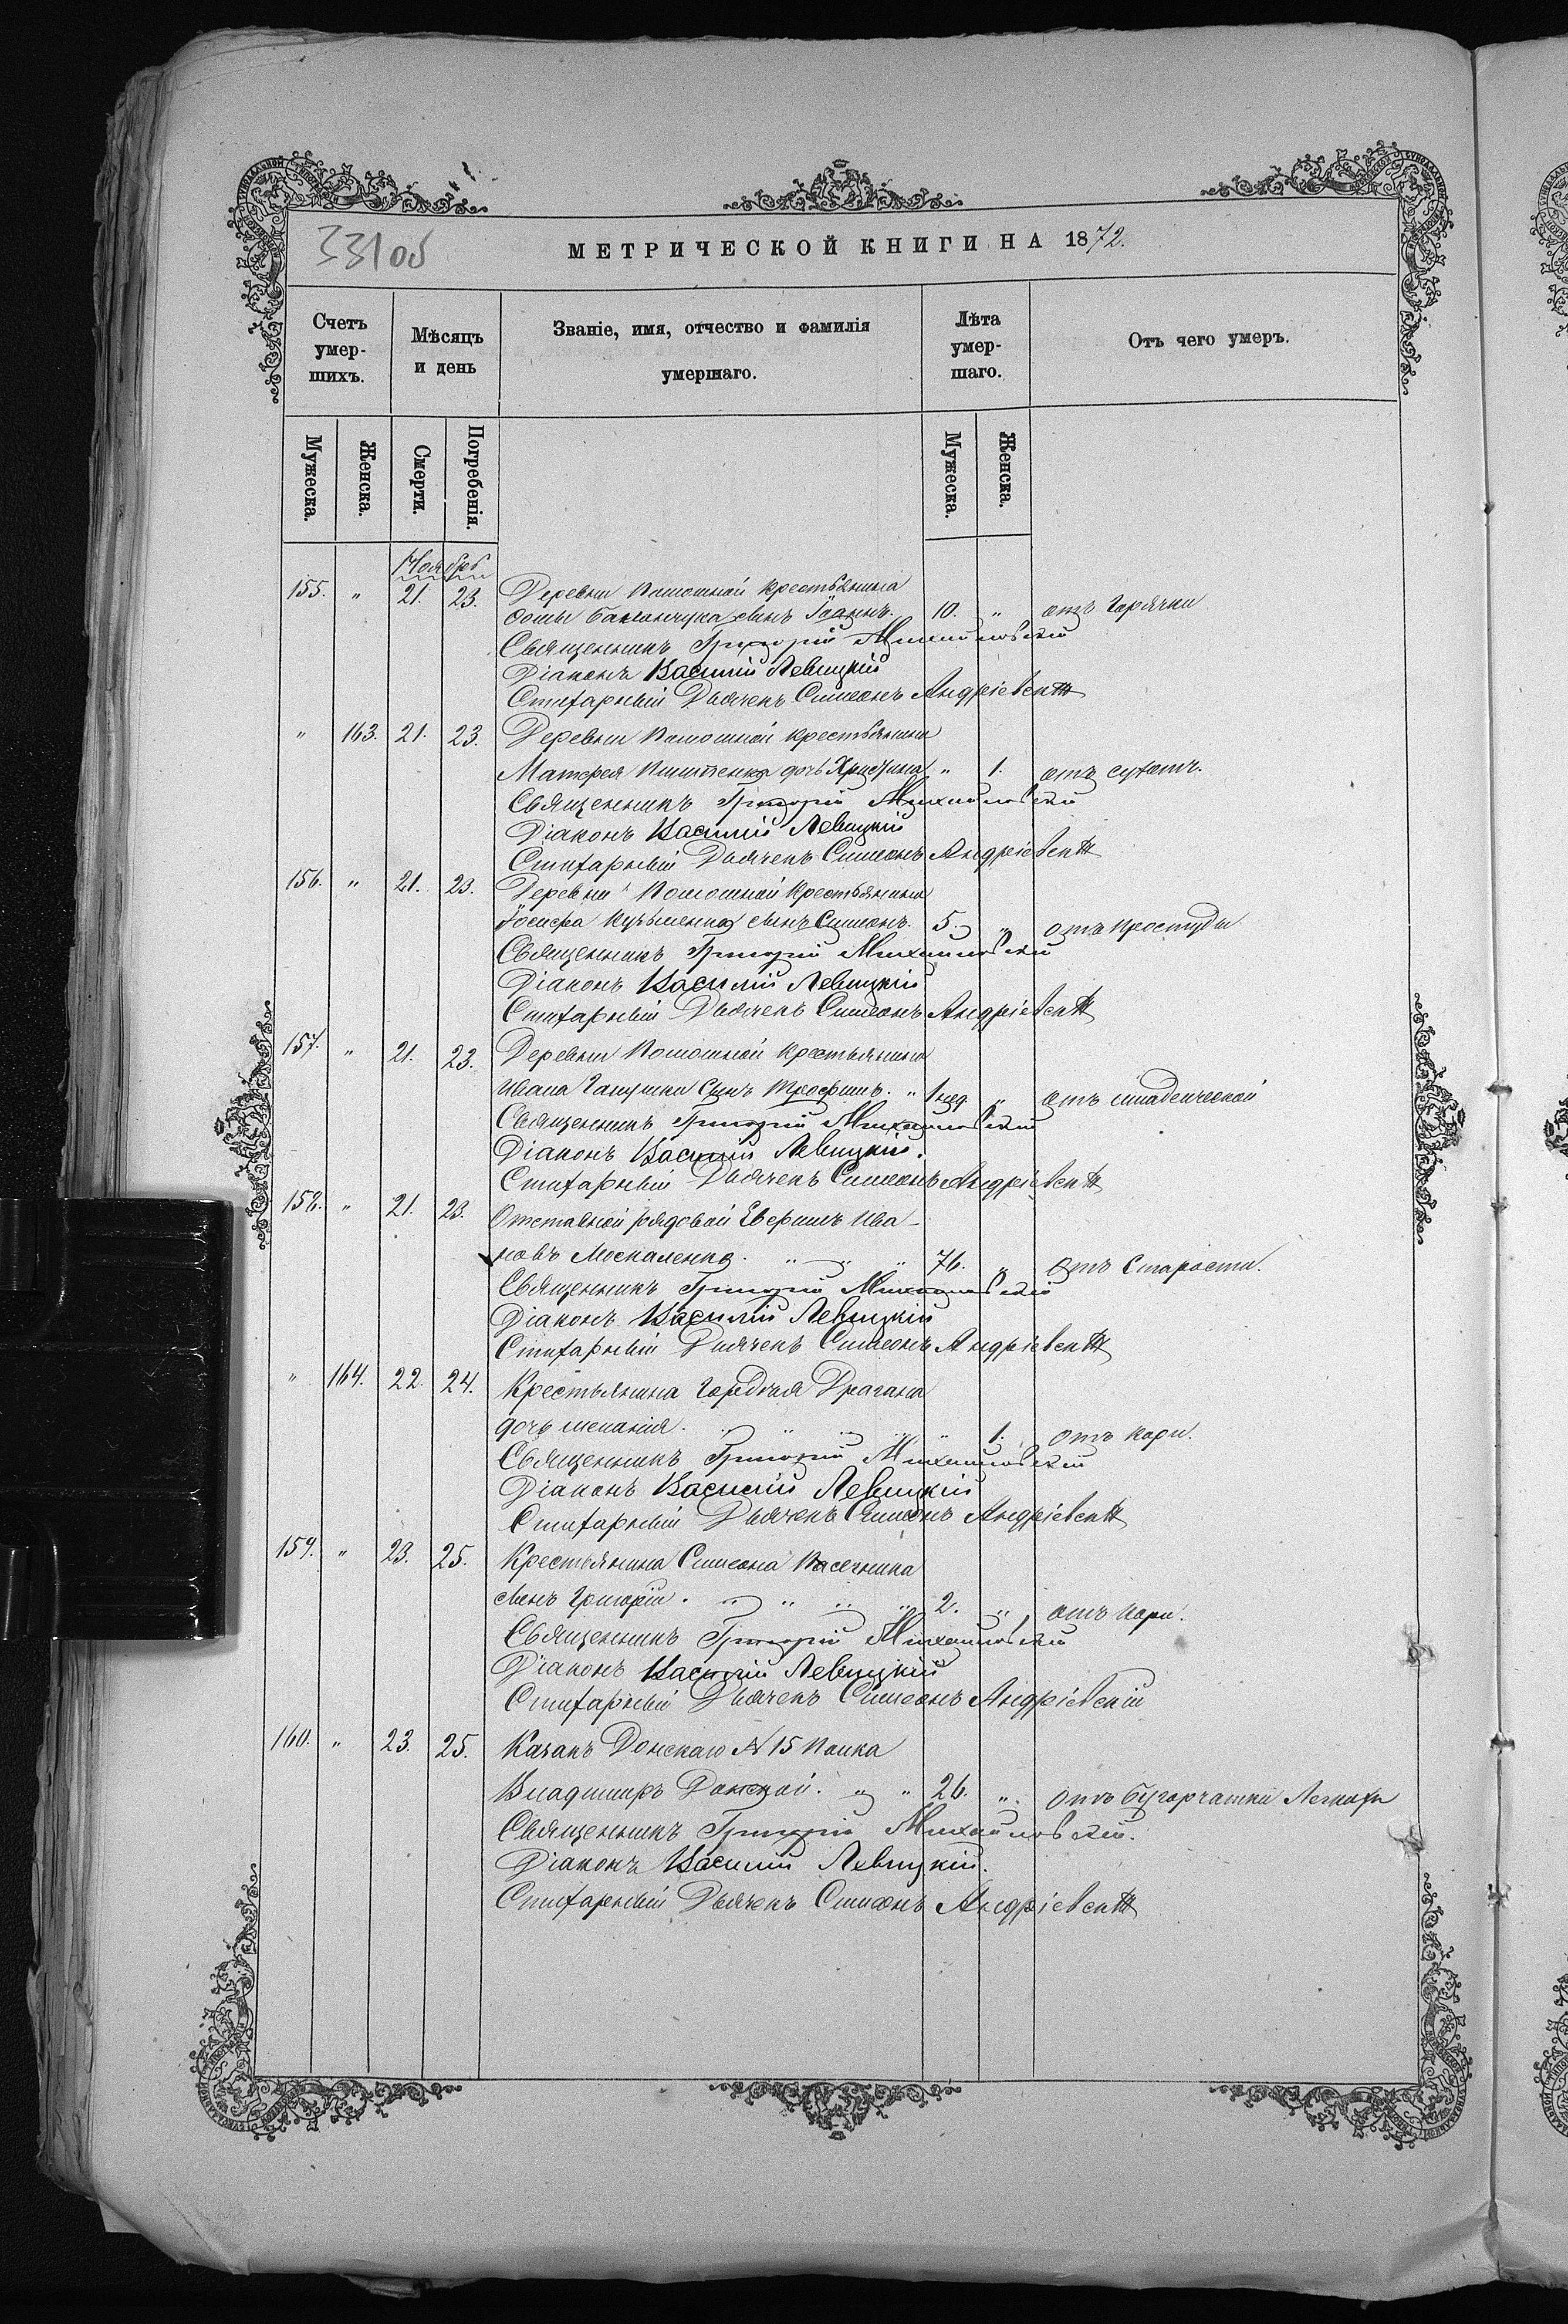 331 об
МЕТРИЧЕСКОЙ КНИГИ НА 1872.
Счетъ умер-шихъ.
Мѣсяцъ и день
Званіе, имя, отчество и фамилія умершаго.
Лѣта умер-шаго.
Отъ чего умеръ.
Мужеска. Женска. Смерти. Погребенія. Мужеска. Женска.
Ноябрь
155. " 21. 23. Деревни Помошной крестьянина
Фомы сынъ Іоаннъ. 10. " отъ горячки
Священникъ Григорій Михайловскій
Діаконъ Василій Левицкій
Стихарный Дьячекъ Симеонъ Андріевскій
" 163. 21. 23. Деревни Помошной крестьянина
Матфея дочь Христина " 1. отъ сухотъ.
Священникъ Григорій Михайловскій
Діаконъ Василій Левицкій
Стихарный Дьячекъ Симеонъ Андріевскій
156. " 21. 23. Деревни Помошной крестьянина
Іосифа Кузьменка сынъ Симеонъ. 5. " отъ простуды
Священникъ Григорій Михайловскій
Діаконъ Василій Левицкій
Стихарный Дьячекъ Симеонъ Андріевскій
157. " 21. 23. Деревни Помошной крестьянина
Ивана сынъ Трофимъ. " 1 нед " отъ младенческой
Священникъ Григорій Михайловскій
Діаконъ Василій Левицкій.
Стихарный Дьячекъ Симеонъ Андріевскій
158. " 21. 23. Отставной рядовой Ефримъ Ива-
новъ Москаленко. " " 76. " отъ Старости.
Священникъ Григорій Михайловскій
Діаконъ Василій Левицкій
Стихарный Дьячекъ Симеонъ Андріевскій
" 164. 22. 24. Крестьянина Гордѣя Драгана
дочь меланія. " " " " 1. отъ кори.
Священникъ Григорій Михайловскій
Діаконъ Василій Левицкій
Стихарный Дьячекъ Симеонъ Андріевскій
159. " 23. 25. Крестьянина Симеона Пасечника
сынъ Григорій. " " " " 2. " отъ кори.
Священникъ Григорій Михайловскій
Діаконъ Василій Левицкій
Стихарный Дьячекъ Симеонъ Андріевскій
160. " 23. 25. Казакъ Донскаго № 15 Полка
Владимиръ Донской. " " 26. ". отъ бугорчатки Легкихъ
Священникъ Григорій Михайловскій.
Діаконъ Василій Левицкій.
Стихарный Дьячекъ Симеонъ Андріевскій